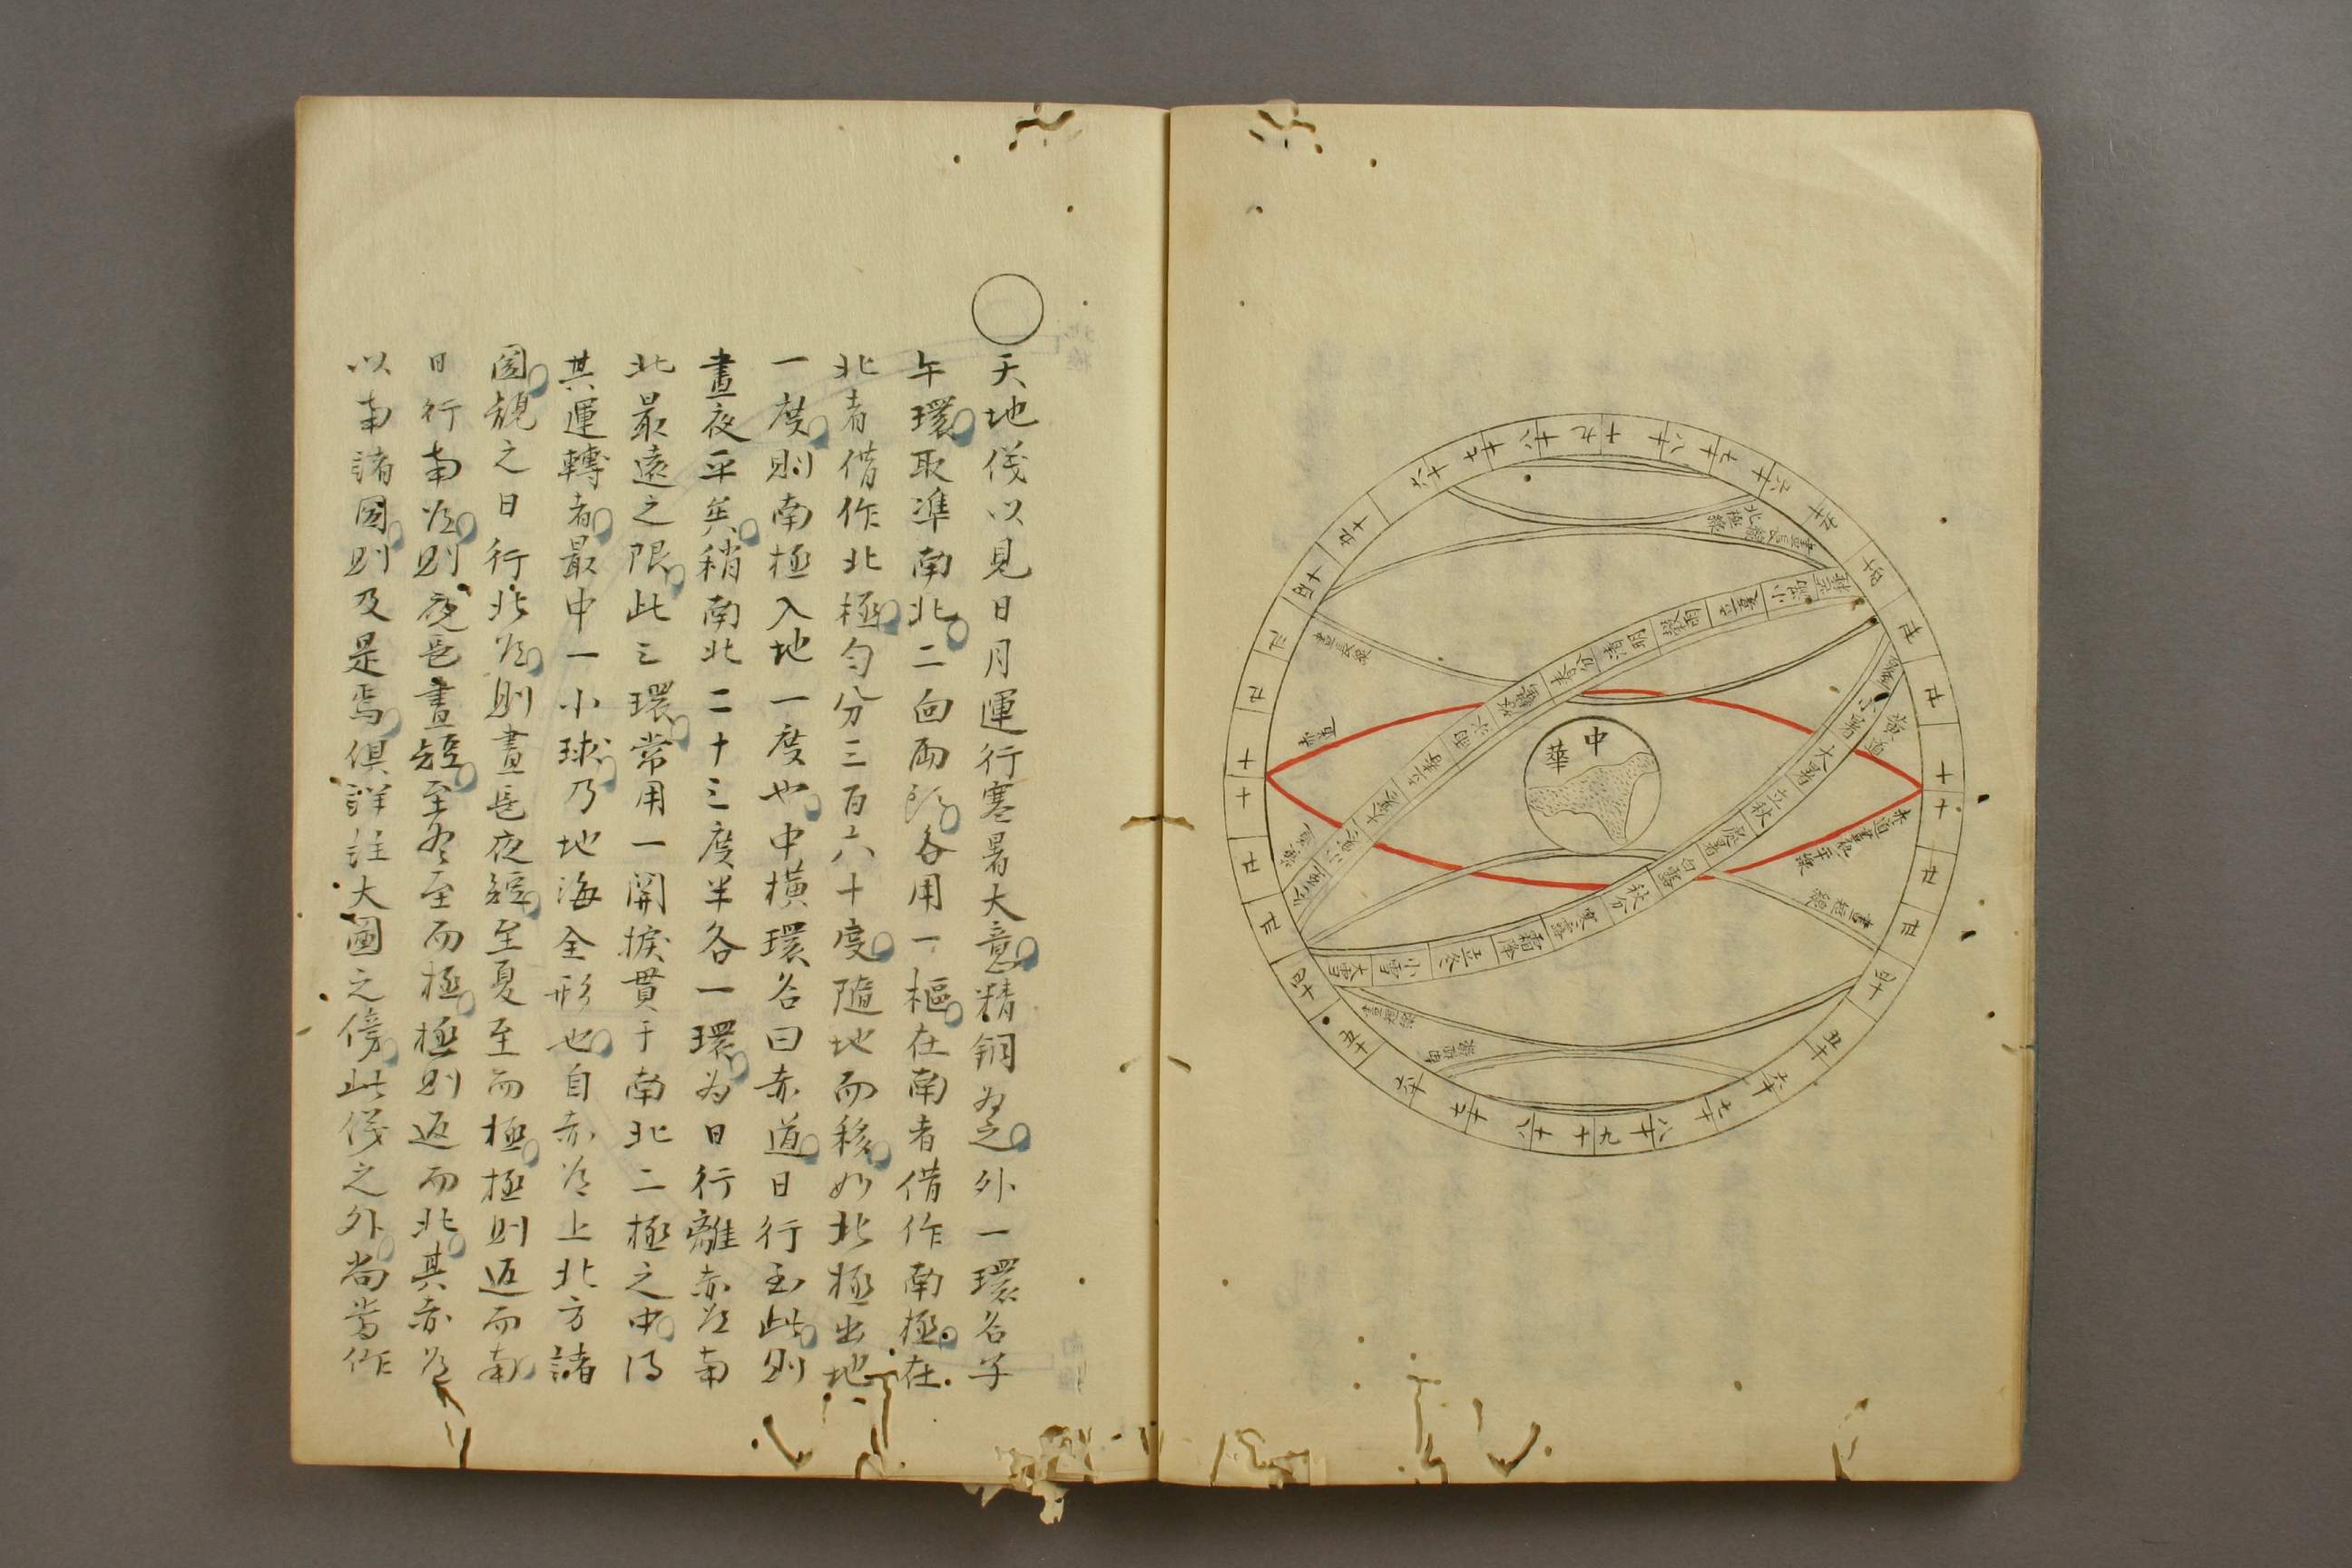 中華
北極線
晝長線
黃道
赤道晝夜平線
晝短線
小暑
大暑
立秋
處暑
白露
秋分
寒露
霜降
立冬
小雪
大雪
天地儀以見日月運行寒暑大意精銅為之外一環名子
午環取準南北二向兩頭各用一樞在南者借作南極在
北者借作北極勻分三百六十度隨地而移如北極出地
一度則南極入地一度也中橫環名曰赤道日行到此則
晝夜平矣稍南北二十三度半各一環為日行離赤道南
北最遠之限此三環常用一開捩貫于南北二極之中得
其運轉者最中一小球乃地海全形也自赤道上北方諸
國視之日行北道則晝長夜短至夏至而極極則返而南
日行南道則夜長晝短至冬至而極極則返而北其赤道
以南諸國則及是焉俱詳註大圖之傍此儀之外尚嘗作